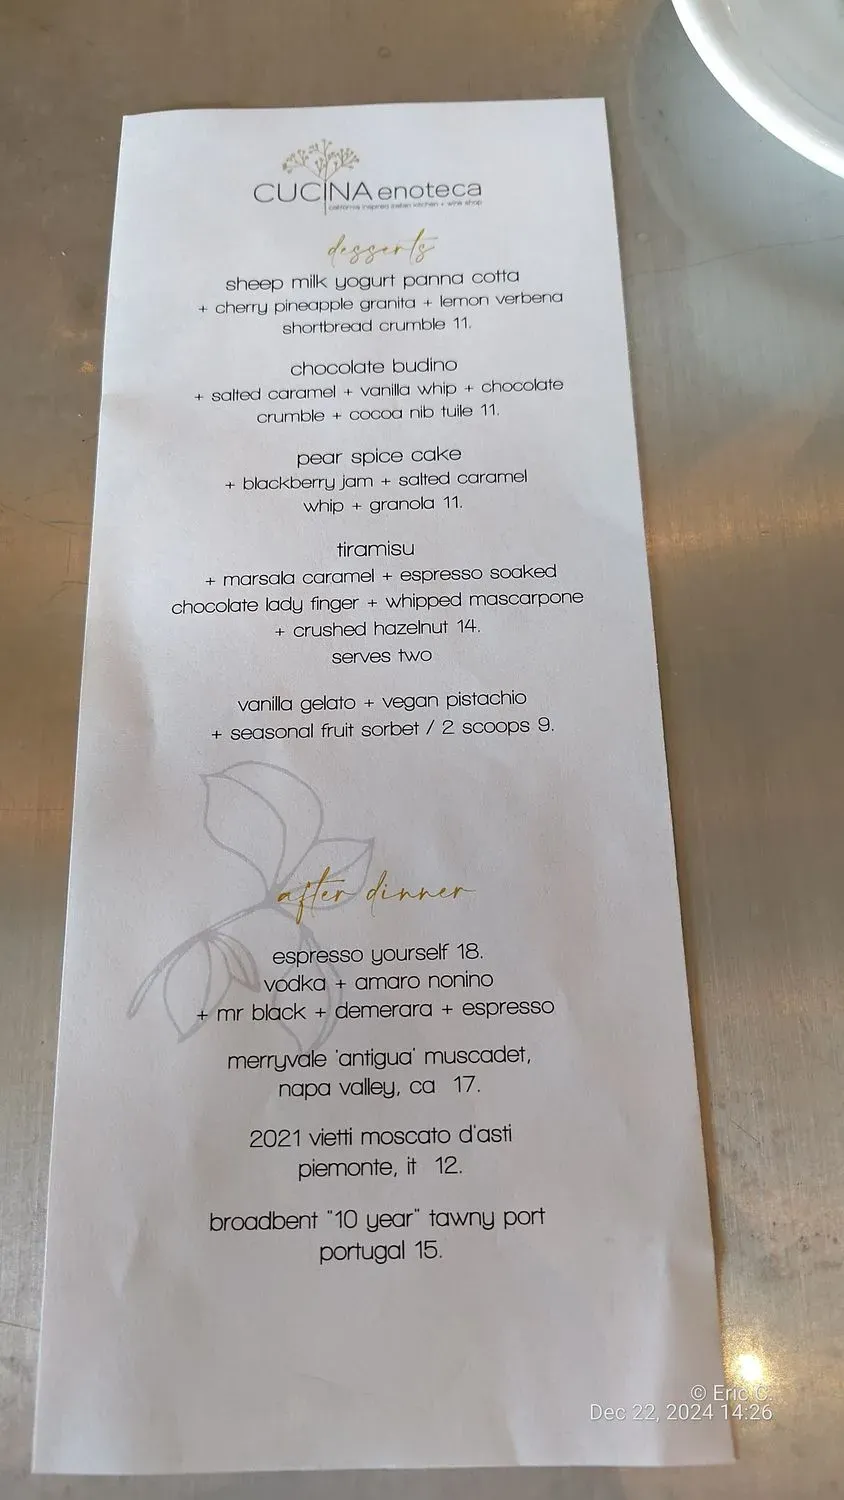 CUCINA enoteca
california inspired italian kitchen + wine shop
desserts
sheep milk yogurt panna cotta
+ cherry pineapple granita + lemon verbena
shortbread crumble 11.
chocolate budino
+ salted caramel + vanilla whip + chocolate
crumble + cocoa nib tuile 11.
pear spice cake
+ blackberry jam + salted caramel
whip + granola 11.
tiramisu
+ marsala caramel + espresso soaked
chocolate lady finger + whipped mascarpone
+ crushed hazelnut 14.
serves two
vanilla gelato + vegan pistachio
+ seasonal fruit sorbet / 2 scoops 9.
after dinner
espresso yourself 18.
vodka + amaro nonino
+ mr black + demerara + espresso
merryvale 'antigua' muscadet,
napa valley, ca 17.
2021 vietti moscato d'asti
piemonte, it 12.
broadbent "10 year" tawny port
portugal 15.
© Eric C.
Dec 22, 2024 14:26